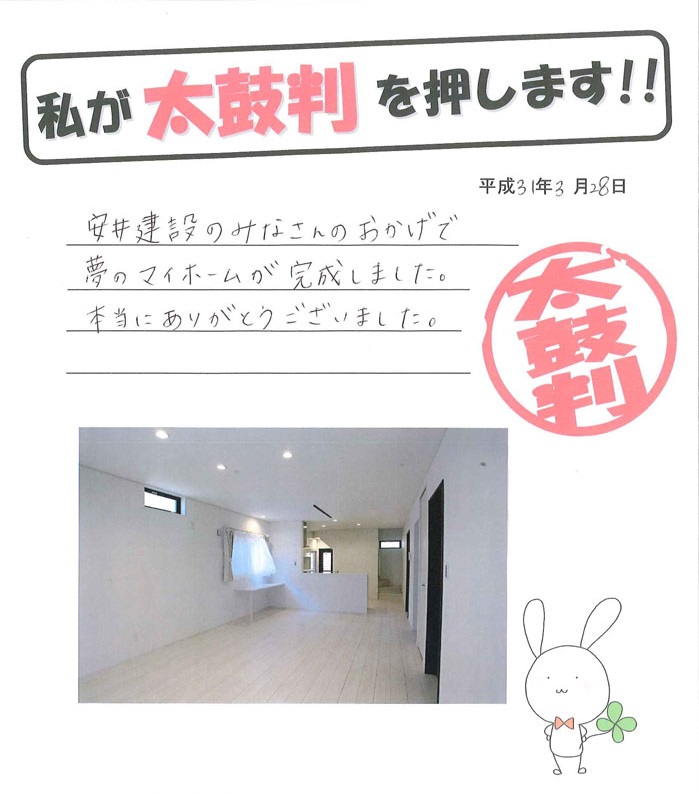 私が太鼓判を押します!!
平成31年3月28日
安井建設のみなさんのおかげで
夢のマイホームが完成しました。
本当にありがとうございました。
太鼓判